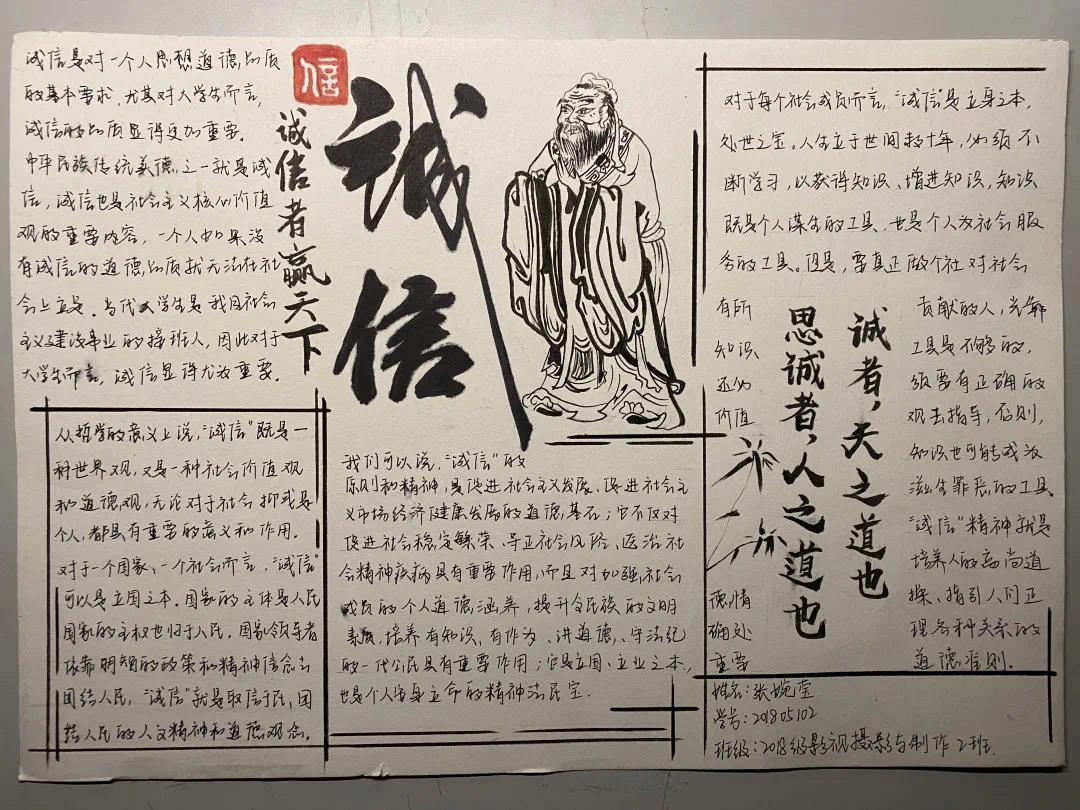 诚信是对一个人思想道德品质
的基本要求，尤其对大学生而言，
诚信的品质显得更加重要。
中华民族传统美德之一就是诚
信，诚信也是社会主义核心价值
观的重要内容，一个人如果没
有诚信的道德品质就无法在社
会上立足。当代大学生是我国社会
主义建设事业的接班人，因此对于
大学生而言，诚信显得尤为重要。
信
诚信者赢天下
诚信
从哲学的意义上说，“诚信”既是一
种世界观，又是一种社会价值观
和道德观，无论对于社会抑或是
个人，都具有重要的意义和作用。
对于一个国家、一个社会而言，“诚信”
可以是立国之本。国家的主体是人民
国家的主权也归于人民。国家领导者
依靠明智的政策和精神信念去
团结人民，“诚信”就是取信于民，团
结人民的人文精神和道德观念。
我们可以说，“诚信”的
原则和精神，是促进社会主义发展、促进社会主
义市场经济健康发展的道德基石；它不仅对
促进社会稳定繁荣、导正社会风险、医治社
会精神疾病具有重要作用，而且对加强社会
成员的个人道德涵养，提升全民族的文明
素质，培养有知识、有作为、讲道德、守法纪
的一代公民具有重要作用；它是立国、立业之本，
也是个人安身立命的精神法宝。
对于每个社会成员而言，“诚信”是立身之本，
处世之宝。人生立于世间数十年，必须不
断学习，以获得知识、增进知识，知识
既是个人谋生的工具，也是个人为社会服
务的工具。但是，要真正做个社对社会
有所 贡献的人，光靠
知识 工具是不够的，
还必 须要有正确的
价值 观去指导，否则，
知识也可能成为
滋生罪恶的工具
“诚信”精神就是
培养人的高尚道
德情 操、指引人们正
确处 理各种关系的
重要 道德准则。
诚者，天之道也
思诚者，人之道也
姓名：张婉莹
学号：201805102
班级：2018级影视摄影与制作2班